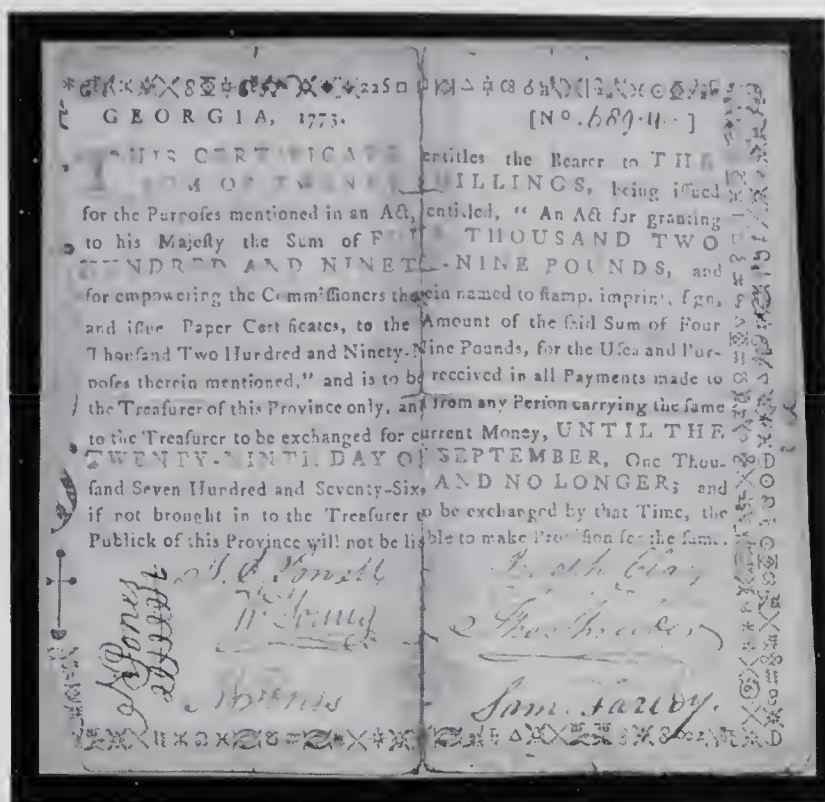 GEORGIA, 1773.
[No. 689.4..]
THIS CERTIFICATE entitles the Bearer to THE
SUM OF TWENTY SHILLINGS, being iſſued
for the Purpoſes mentioned in an Act, entitled, “ An Act for granting
to his Majeſty the Sum of FOUR THOUSAND TWO
HUNDRED AND NINETY-NINE POUNDS, and
for empowering the Commiſſioners therein named to ſtamp, imprint, ſign,
and iſſue Paper Certificates, to the Amount of the ſaid Sum of Four
Thouſand Two Hundred and Ninety-Nine Pounds, for the Uſes and Pur-
poſes therein mentioned,” and is to be received in all Payments made to
the Treaſurer of this Province only, and from any Perſon carrying the ſame
to the Treaſurer to be exchanged for current Money, UNTIL THE
TWENTY-NINTH DAY OF SEPTEMBER, One Thou-
ſand Seven Hundred and Seventy-Six, AND NO LONGER; and
if not brought in to the Treaſurer to be exchanged by that Time, the
Publick of this Province will not be liable to make Proviſion for the ſame.
Powell
Clay
W Young
N Jones
Sam. Farley.